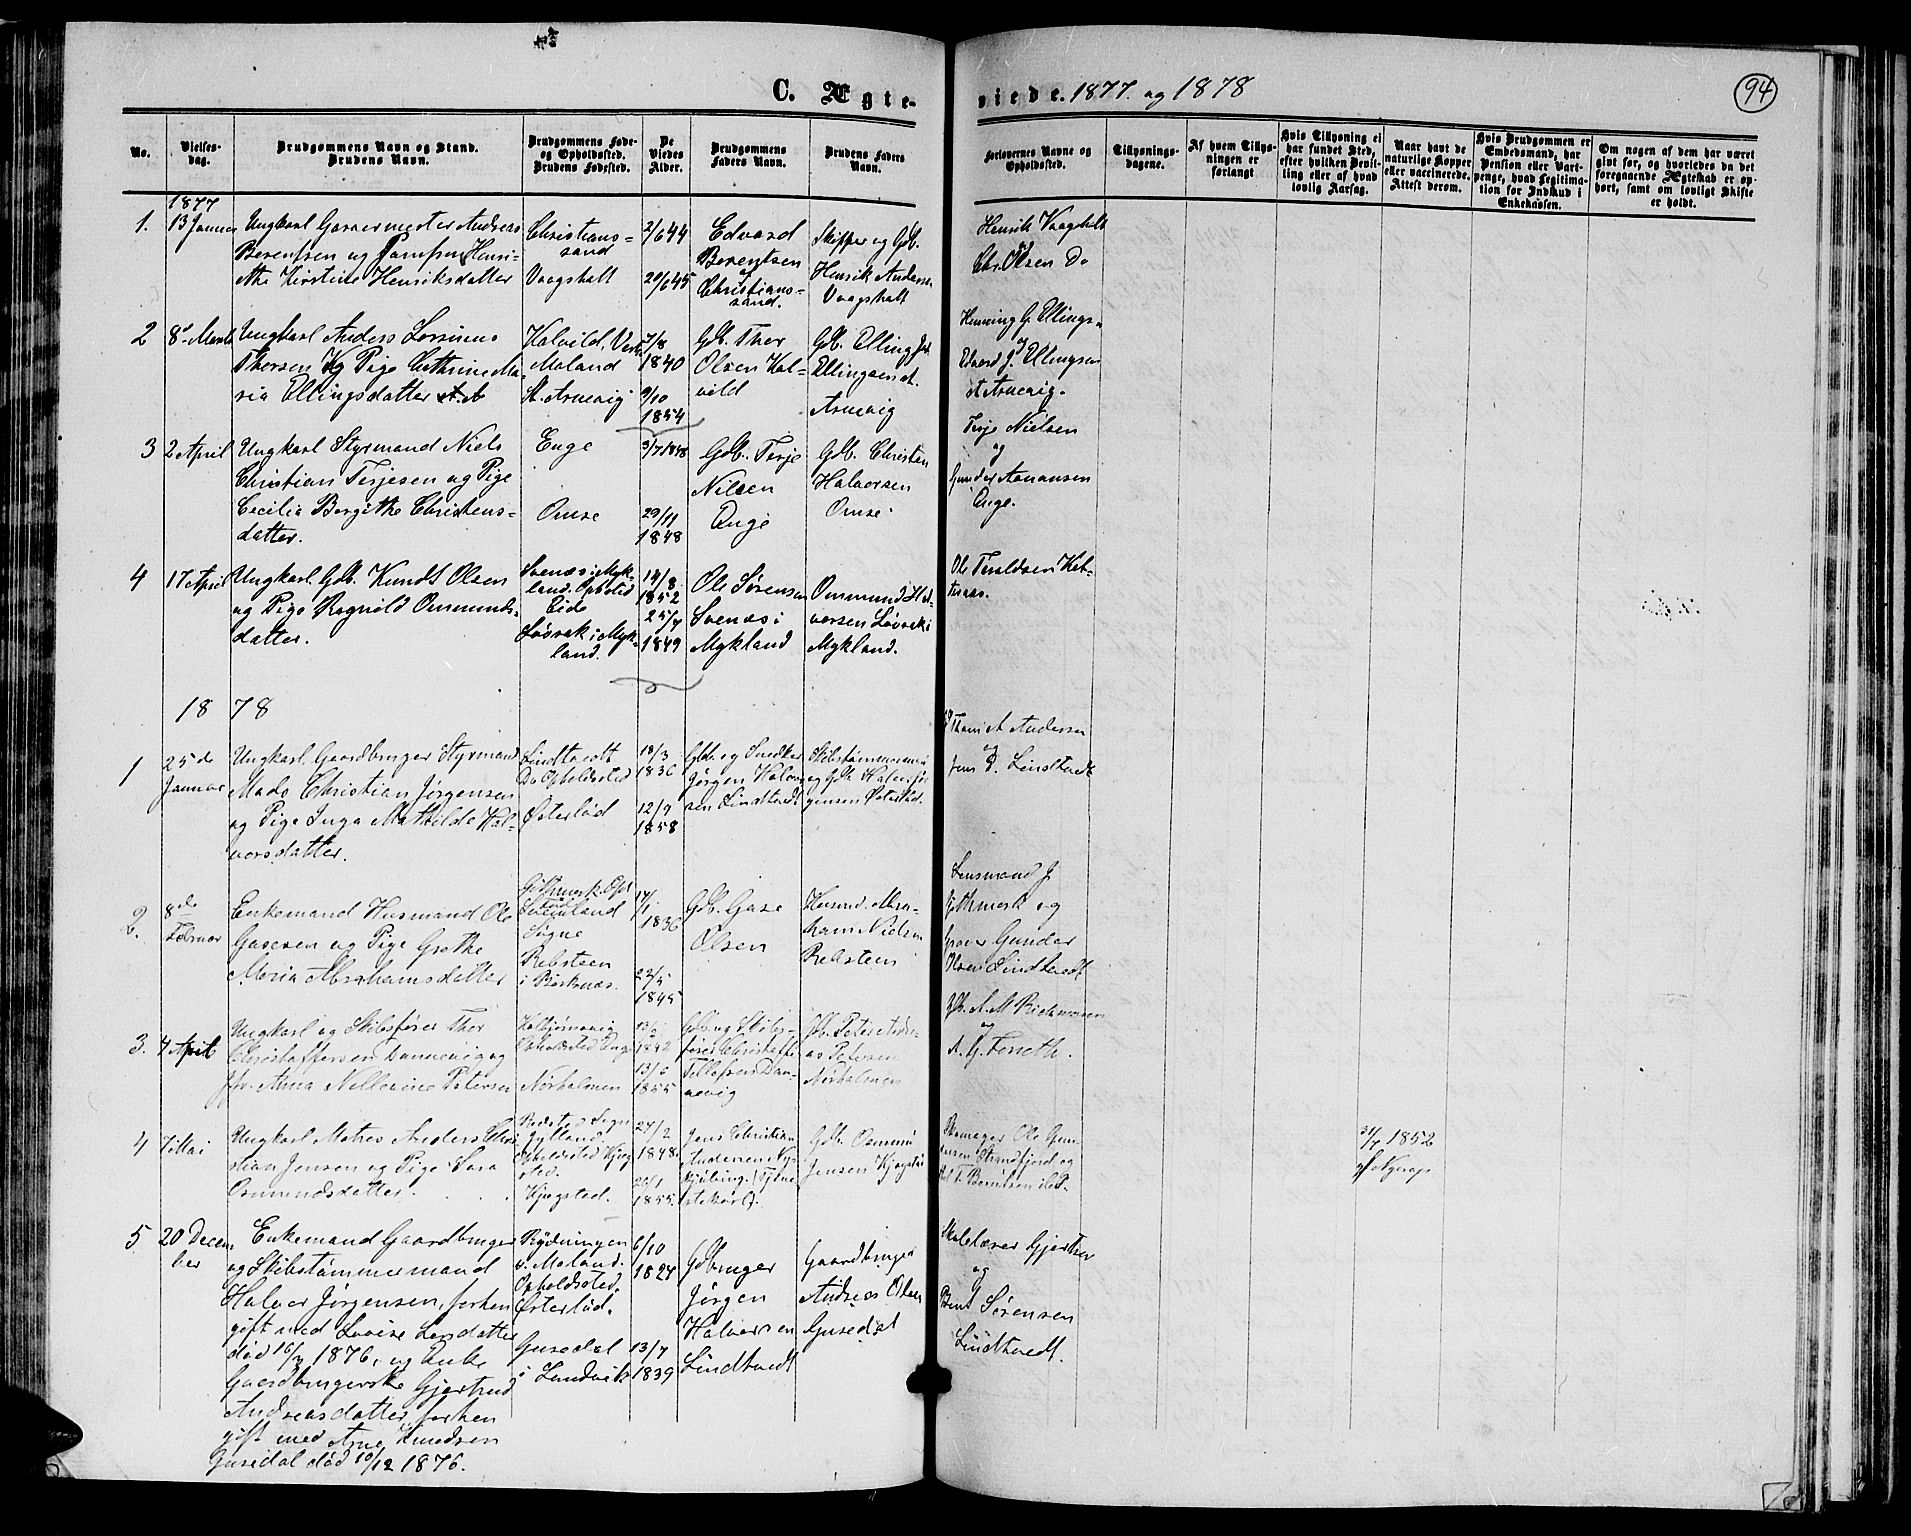 C. Ægteviede. 1877. og 1878
94
No.
Vielsesdag.
Brudgommens Navn og Stand.
Brudens Navn.
Brudgommens Føde-
og Opholdssted.
Brudens Fødested.
De
Viedes
Alder.
Brudgommens
Faders Navn.
Brudens Faders
Navn.
Forlovernes Navne og
Opholdssted.
Tillysnings-
dagene.
Af hvem Tillys-
ningen er
forlangt
Hvis Tillysning ei
har fundet Sted,
efter hvilken Bevil-
ling eller af hvad
lovlig Aarsag.
Naar havt de
naturlige Kopper
eller vaccinerede.
Attest derom.
Hvis Brudgommen er
Embedsmand, har
Pension eller Vart-
penge, hvad Legitima-
tion for Indskud i
Enkekassen.
Om nogen af dem har været
gift før, og hvorledes da det
foregaaende Ægteskab er op-
hørt, samt om lovligt Skifte
er holdt.
1877
1.
13 Januar
Ungkarl Garvermester Andreas
Berentsen og Jomfru Henri-
ette Kirstine Henriksdatter
Christians=
sand
Vaagsholt
2/6 44
20/6 45
Edvard
Berentsen
Christians=
sand.
Skipper og Gdb.
Henrik Andersen
Vaagsholt
Henrik Vaagsholt
og
Chr. Olsen Do
2
8de Marts
Ungkarl Anders Lorsinus
Thorsen og Pige Cathrine Ma-
ria Ellingsdatter
Kalvild, Vestre
Moland
St. Arnevig
7/8
1840
9/10
1854
Gdb. Thor
Olsen Kal-
vild
Gdb. Elling
Ellingsen
Arnevig
Henning G. Ellings-
og
Edvard J. Ellingsen
st Arnevig.
3
2 April
Ungkarl Styrmand Niels
Christian Terjesen og Pige
Cecilia Bergithe Christens=
datter.
Enge
Omse
3/7 1848
29/11
1848
Gdb. Terje
Nilsen
Enge
Gdb. Christen
Halvorsen
Omse
Terje Nielsen
og
Gunder Aanansen
Enge.
4
17 April
Ungkarl. Gdb. Knudt Olsen
og Pige Ragnild Ommunds-
datter.
Svenæs i Myk-
land. Opholdssted
Eide
Løvrak i Myk-
land.
14/8
1852
25/7
1849
Ole Sørensen
Svenæs i
Mykland
Ommund Hal-
vorsen Løvrak i
Mykland.
Ole Teraldsen Ket-
teraas.
1878
1
25de
Januar
Ungkarl. Gaardbruger Styrmand
Mads Christian Jørgensen
og Pige Inga Mathilde Hal-
vorsdatter.
Lindtvedt
Do Opholdssted
Østerlød
18/3
1836
12/9
1858
Gdb. og Snedker
Jørgen Halvor-
sen Lindtvedt
Skibstømmermand
og Gdb. Halvor Jør
gensen Østerlød.
Thom A Andersen
og
Jens P. Lindtvedt
2.
8de
Februar
Enkemand Husmand Ole
Gasesen og Pige Grethe
Maria Abrahamsdatter
Søgne
Rebsteen
i Birkenæs.
17/1
1836
22/5
1845
Gdb. Gase
Olsen
Husmd. Abra-
ham Nielsen
Rebsteen
Lensmand J
Gothmark og
Gunder
Olsen Lindtvedt
3.
4 April
Ungkarl og Skibsfører Thor
Christoffersen Dannevig og
Anna Nellevine Petersen
Opholdssted Enge
Nørholmen
1842
13/6
1855
Gdb. og Skibs-
fører Christoffer
Tellefsen Dan-
nevig
Gdb. Peter Andre-
as Petersen
Nørholmen
A. M Rickmansen
og
A. G. Terseth.
4
7 Mai
Ungkarl Matros Anders Chri
stian Jensen og Pige Sara
Osmundsdatter.
Jylland.
Opholdssted Kjeg
sted.
Kjegstad.
27/2
1848.
20/1
1855.
Jens Christian
Andersen Ny-
kjøbing. (Tjene
stekarl).
Gdb. Osmund
Jensen Kjegstad
Ole Gun-
Strandfjord og
31/7 1852
5
20 Decem
ber
Enkemand Gaardbruger
og Skibstømmermand
Halvor Jørgensen, forhen
gift med Lovise Larsdatter
død 16/3 1876, og Enke
Gaardbrugerske Gjertrud
Andreasdatter, forhen
gift med Arne Knudsen
Gusedal død 10/12 1876.
Rydningen
v. Moland.
Opholdssted
Østerlød.
Gusedal
i Landvik
6/10
1824
13/7
1839
Gdbruger
Jørgen
Halvorsen
Lindtvedt
Gaardbruger
Andreas Olsen
Gusedal
Skolelærer Gjertsen
og
Bent Sørensen
Lindtvedt.